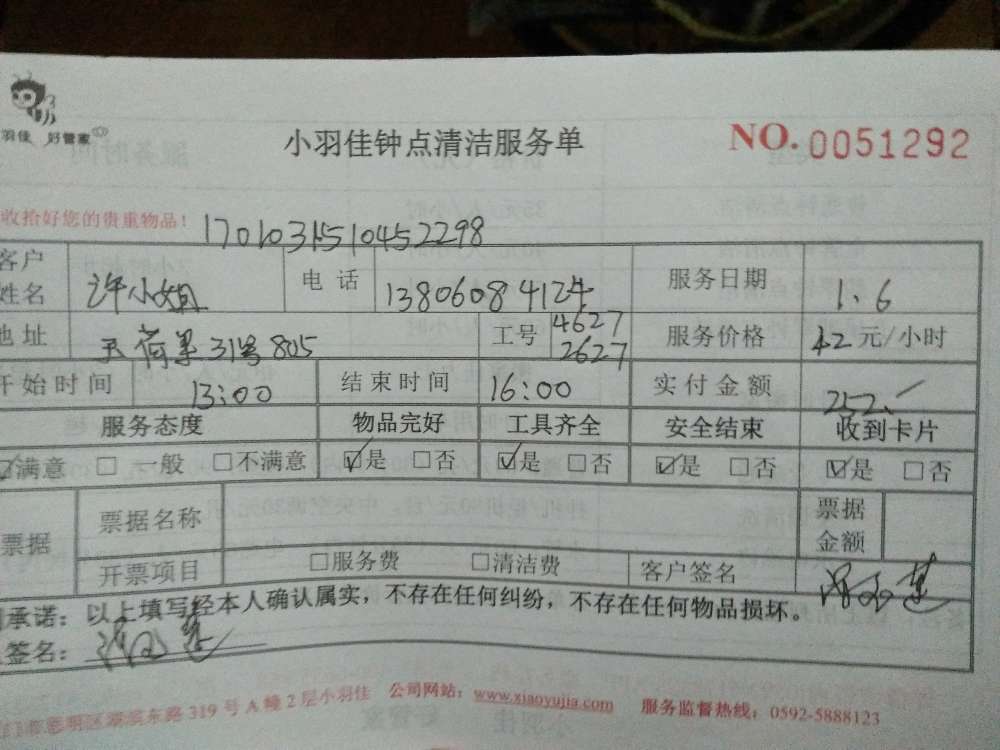 羽佳 好管家
小羽佳钟点清洁服务单
NO. 0051292
收拾好您的贵重物品!
1701031510452298
客户姓名 许小姐 电话 13806084124 服务日期 1.6
地址 31号805 工号 4627 2627 服务价格 42元/小时
开始时间 13:00 结束时间 16:00 实付金额 252.
服务态度 物品完好 工具齐全 安全结束 收到卡片
☑满意 □一般 □不满意 ☑是 □否 ☑是 □否 ☑是 □否 ☑是 □否
票据 票据名称 票据金额
开票项目 □服务费 □清洁费 客户签名
承诺:以上填写经本人确认属实,不存在任何纠纷,不存在任何物品损坏。
签名:
门市思明区湖滨东路319号A幢2层小羽佳 公司网站:www.xiaoyujia.com 服务监督热线:0592-5888123